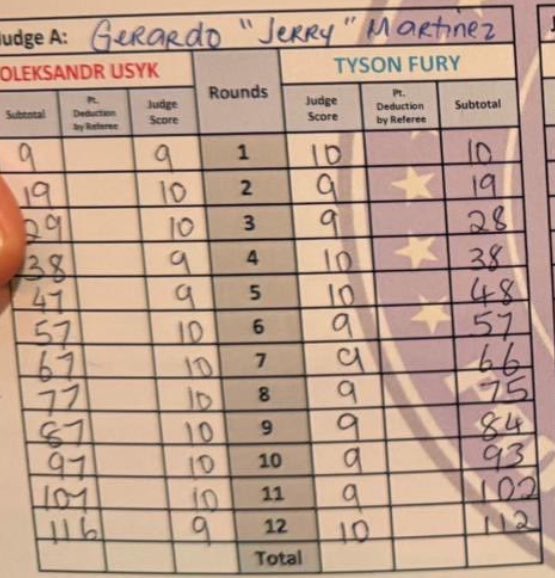 Judge A: Gerardo "Jerry" Martinez
OLEKSANDR USYK Rounds TYSON FURY
Subtotal Pt. Deduction by Referee Judge Score Judge Score Pt. Deduction by Referee Subtotal
9 9 1 10 10
19 10 2 9 19
29 10 3 9 28
38 9 4 10 38
47 9 5 10 48
57 10 6 9 57
67 10 7 9 66
77 10 8 9 75
87 10 9 9 84
97 10 10 9 93
107 10 11 9 102
116 9 12 10 112
Total